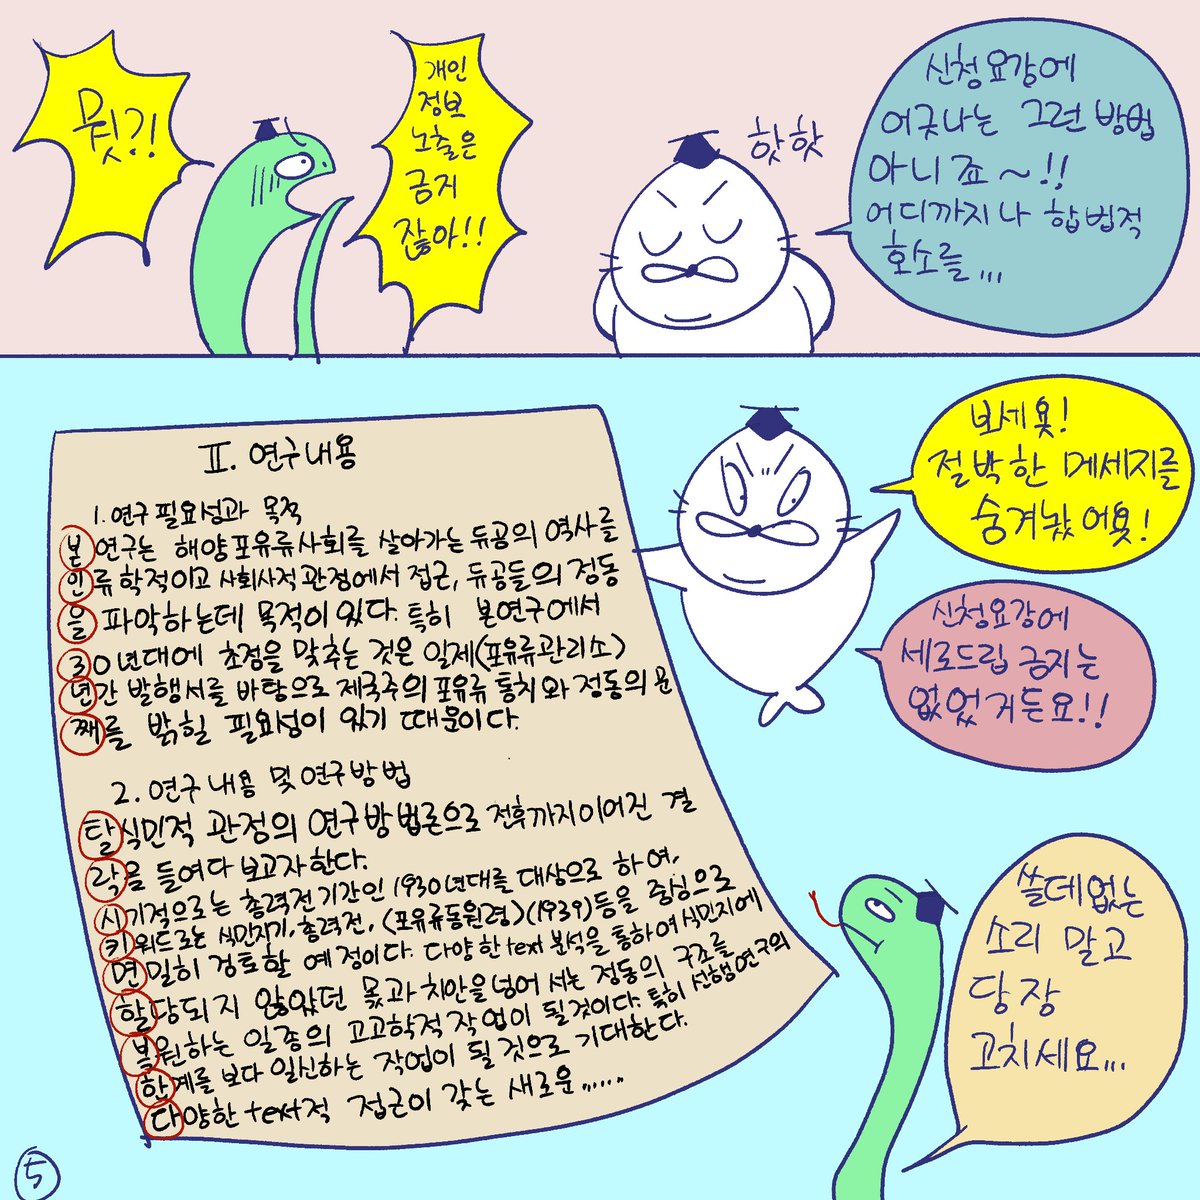 뭣?!
개인
정보
노출은
금지
잖아!!
핫핫
신청요강에
어긋나는 그런 방법
아니죠~!!
어디까지나 합법적
호소를...
Ⅱ. 연구내용
1. 연구 필요성과 목적
본 연구는 해양포유류사회를 살아가는 듀공의 역사를
인류학적이고 사회사적 관점에서 접근, 듀공들의 정동
을 파악하는데 목적이 있다. 특히 본연구에서
30년대에 초점을 맞추는 것은 일제(포유류관리소)
년간 발행서를 바탕으로 제국주의 포유류 통치와 정동의 문
째를 밝힐 필요성이 있기 때문이다.
2. 연구내용 및 연구방법
탈식민적 관점의 연구방법론으로 전후까지이어진 결
락을 들여다 보고자한다.
시기적으로는 총력전기간인 1930년대를 대상으로 하여,
키워드로는 식민지기, 총력전, (포유류동원령)(1939)등을 중심으로
면밀히 검토할 예정이다. 다양한 text 분석을 통하여 식민지에
할당되지 않았던 몫과 치안을 넘어 서는 정동의 구조를
복원하는 일종의 고고학적 작업이 될것이다. 특히 선행연구의
한계를 보다 일신하는 작업이 될 것으로 기대한다.
다양한 text적 접근이 갖는 새로운......
보세욧!
절박한 메세지를
숨겨놨어욧!
신청요강에
세로드립 금지는
없었거든요!!
쓸데없는
소리 말고
당장
고치세요...
5